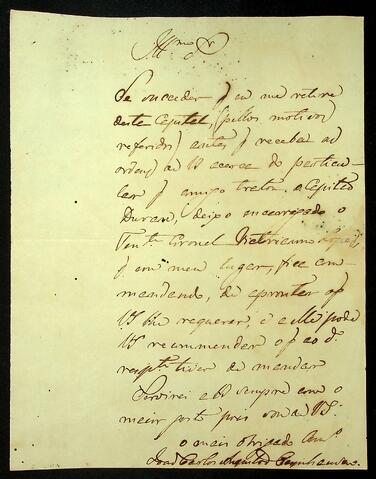 Illmo Sr
Se succeder q eu me retire
desta Capital, (pellos motivos
referidos) antes q receba as
ordens de VS acerca do particu-
lar q amigo tratou o Capitão
Duran, deixo encarregado o
Tente Coronel
q em meu lugar, fica com-
mandando, de apromtar o q
VS lhe requerer, e a elle pode
VS recommendar o q ao do
respectivo de mandar
Servirei a VS sempre com o
maior gosto pois sou de VS.
o mais obrigado Amo
João Carlos Augusto d'Oeynhausen